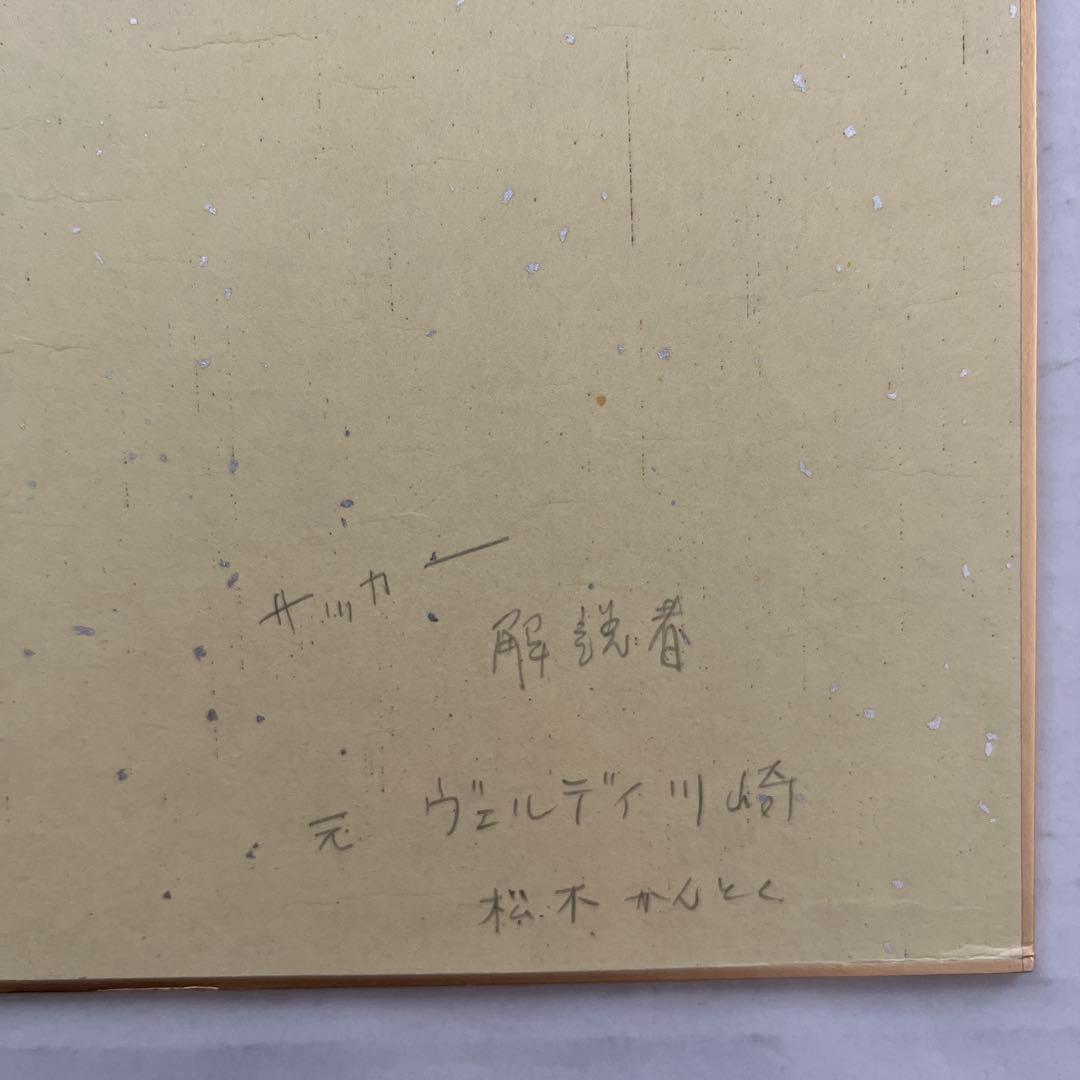 サッカー
解説者
元 ヴェルディ川崎
松木かんとく